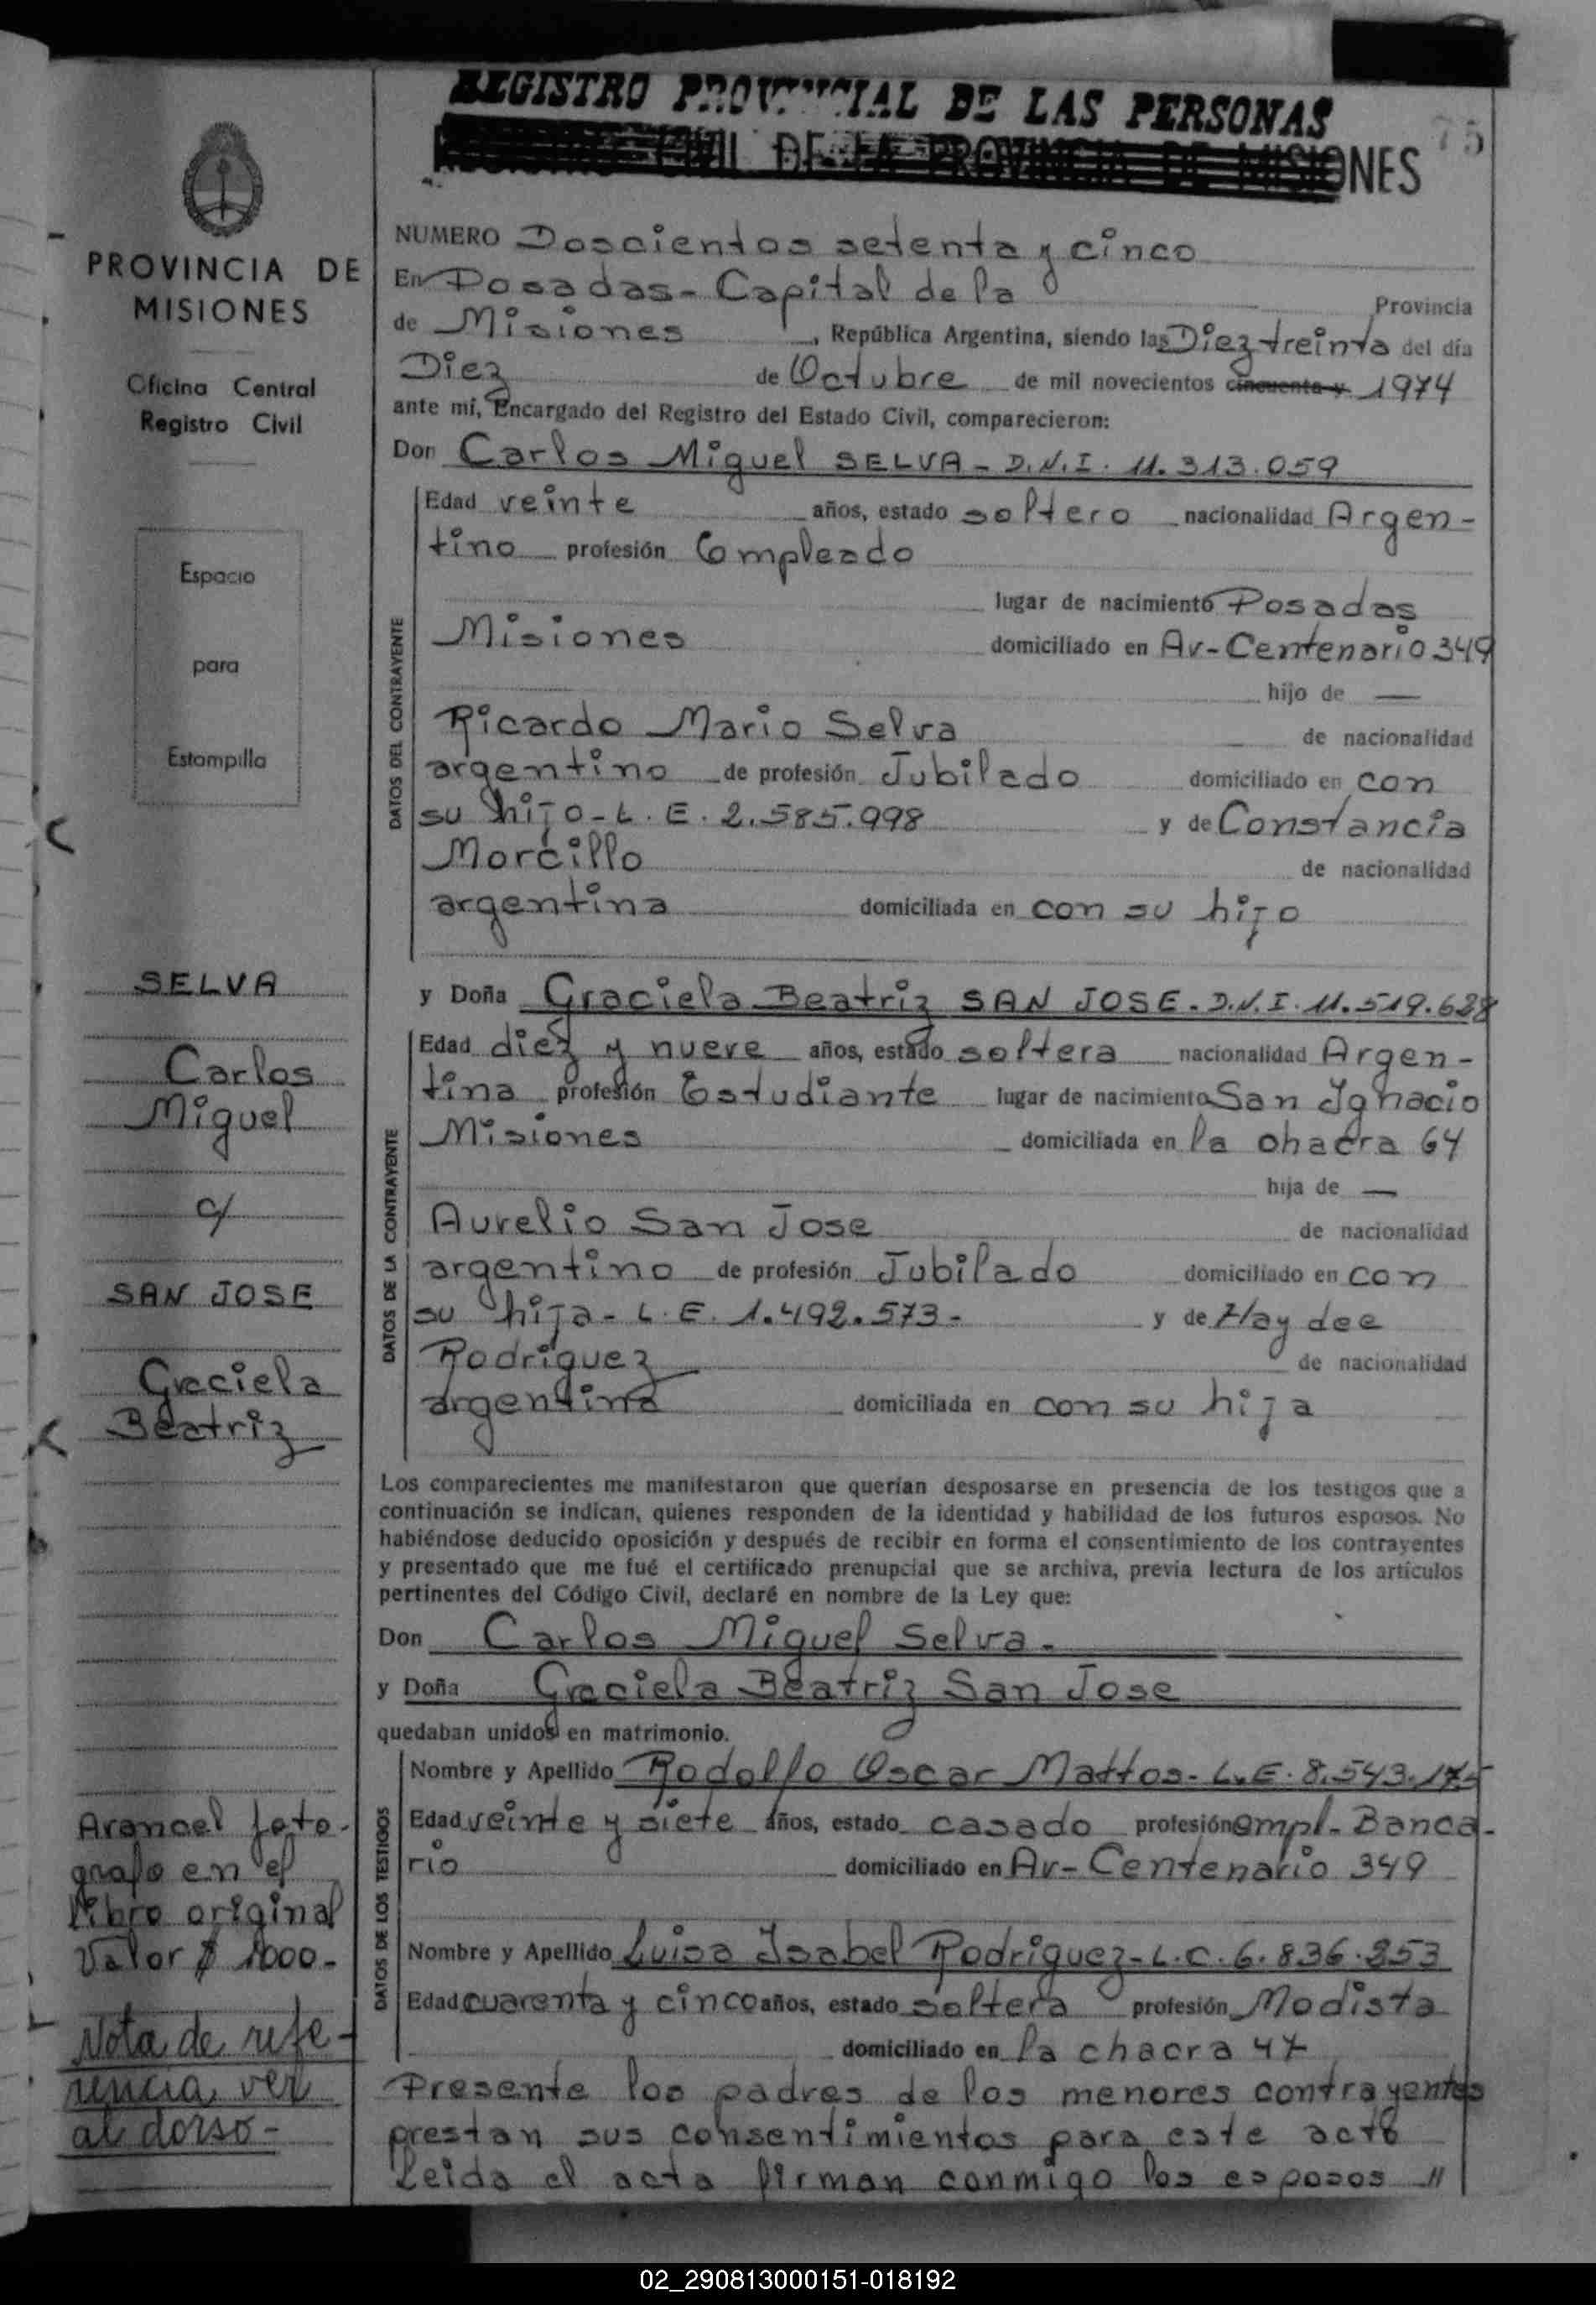 REGISTRO PROVINCIAL DE LAS PERSONAS
CIVIL DE LA PROVINCIA DE MISIONES
75
PROVINCIA DE
MISIONES
Oficina Central
Registro Civil
Espacio
para
Estampilla
SELVA
Carlos
Miguel
c/
SAN JOSE
Graciela
Beatriz
Arancel foto-
grafo en el
libro original
Valor $ 1000-
Nota de refe-
rencia ver
al dorso-
NUMERO Doscientos setenta y cinco
En Posadas - Capital de la Provincia
de Misiones, República Argentina, siendo las Diez treinta del día
Diez de Octubre de mil novecientos cincuenta y 1974
ante mí, Encargado del Registro del Estado Civil, comparecieron:
Don Carlos Miguel SELVA - D.N.I. 11.313.059
DATOS DEL CONTRAYENTE
Edad veinte años, estado soltero nacionalidad Argen-
tino profesión Empleado
lugar de nacimiento Posadas
Misiones domiciliado en Av- Centenario 349
hijo de —
Ricardo Mario Selva de nacionalidad
argentino de profesión Jubilado domiciliado en con
su hijo - L.E. 2.585.998 y de Constancia
Morcillo de nacionalidad
argentina domiciliada en con su hijo
y Doña Graciela Beatriz SAN JOSE - D.N.I. 11.519.628
DATOS DE LA CONTRAYENTE
Edad diez y nueve años, estado soltera nacionalidad Argen-
tina profesión Estudiante lugar de nacimiento San Ignacio
Misiones domiciliada en la chacra 64
hija de —
Aurelio San Jose de nacionalidad
argentino de profesión Jubilado domiciliado en con
su hija - L.E. 1.492.573 - y de Haydee
Rodriguez de nacionalidad
argentina domiciliada en con su hija
Los comparecientes me manifestaron que querían desposarse en presencia de los testigos que a
continuación se indican, quienes responden de la identidad y habilidad de los futuros esposos. No
habiéndose deducido oposición y después de recibir en forma el consentimiento de los contrayentes
y presentado que me fué el certificado prenupcial que se archiva, previa lectura de los artículos
pertinentes del Código Civil, declaré en nombre de la Ley que:
Don Carlos Miguel Selva -
y Doña Graciela Beatriz San Jose
quedaban unidos en matrimonio.
DATOS DE LOS TESTIGOS
Nombre y Apellido Rodolfo Oscar Mattos - L.E. 8.543.175
Edad veinte y siete años, estado casado profesión empl- Banca-
rio domiciliado en Av- Centenario 349
Nombre y Apellido Luisa Isabel Rodriguez - L.C. 6.836.853
Edad cuarenta y cinco años, estado soltera profesión Modista
domiciliado en la chacra 47
Presente los padres de los menores contrayentes
prestan sus consentimientos para este acto
Leida el acta firman conmigo los esposos //
02_290813000151-018192